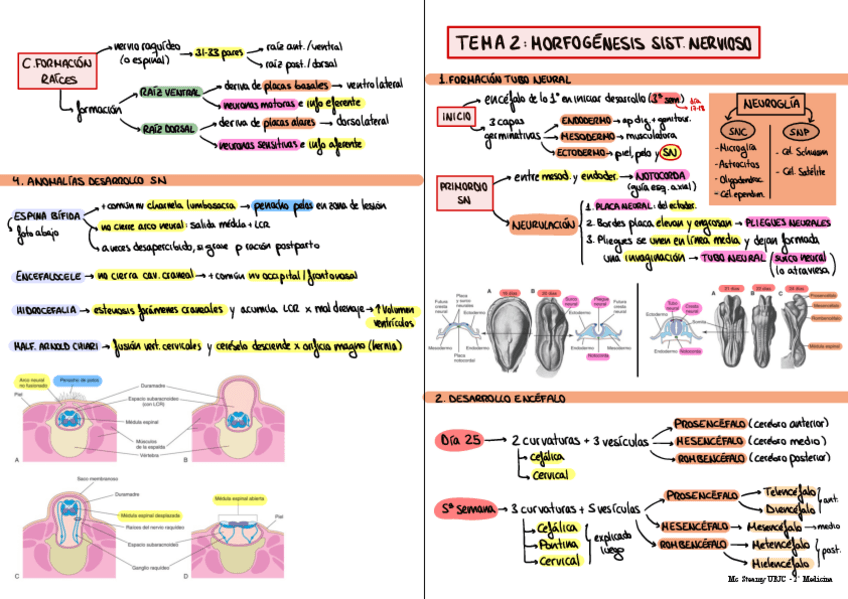 C. FORMACIÓN
RAÍCES
nervio raquídeo
(o espinal)
31-33 pares
raíz ant./ventral
raíz post./dorsal
formación
RAÍZ VENTRAL
deriva de placas basales → ventrolateral
neuronas motoras e info eferente
RAÍZ DORSAL
deriva de placas alares → dorsolateral
neuronas sensitivas e info aferente
4. ANOMALÍAS DESARROLLO SN
ESPINA BÍFIDA
foto abajo
+ común nv charnela lumbosacra → penacho pelos en zona de lesión
no cierre arco neural: salida médula + LCR
a veces desapercibido, si grave → ración postparto
ENCEFALOCELE → no cierra cav. craneal → + común nv occipital/frontonasal
HIDROCEFALIA → estenosis forámenes craneales y acumula LCR x mal drenaje → ↑ volumen
ventrículos
MALF. ARNOLD CHIARI → fusión vert. cervicales y cerebelo desciende x orificio magno (hernia)
Arco neural
no fusionado
Penacho de pelos
Piel
Duramadre
Espacio subaracnoideo
(con LCR)
Médula espinal
Músculos
de la espalda
Vértebra
A
B
Saco membranoso
Duramadre
Médula espinal desplazada
Raíces del nervio raquídeo
Espacio subaracnoideo
Ganglio raquídeo
Médula espinal abierta
Piel
C
D
TEMA 2: MORFOGÉNESIS SIST. NERVIOSO
1. FORMACIÓN TUBO NEURAL
INICIO
encéfalo de lo 1º en iniciar desarrollo (3ª sem)
día
17-18
3 capas
germinativas
ENDODERMO → ap dig. + genitour.
MESODERMO → musculatura
ECTODERMO → piel, pelo y SN
NEUROGLÍA
SNC
- Microglía
- Astrocitos
- Oligodendroc
- Cél ependim.
SNP
- Cél. Schwann
- Cél. Satélite
PRIMORDIO
SN
entre mesod. y endoder. → NOTOCORDA
(guía esq. axial)
NEURULACIÓN
1. PLACA NEURAL: del ectoder.
2. Bordes placa elevan y engrosan → PLIEGUES NEURALES
3. Pliegues se unen en línea media y dejan formada
una invaginación → TUBO NEURAL (surco neural
lo atraviesa)
A
18 días
B
20 días
Futura
cresta
neural
Placa
y surco
neurales
Ectodermo
Mesodermo
Endodermo
Placa
notocordal
Surco
neural
Pliegue
neural
Futura
cresta
neural
Ectodermo
Endodermo
Mesodermo
Notocorda
Tubo
neural
Cresta
neural
Ectodermo
Somita
Endodermo
Notocorda
A
21 días
B
22 días
C
26 días
Prosencéfalo
Mesencéfalo
Rombencéfalo
Médula espinal
2. DESARROLLO ENCÉFALO
Día 25
2 curvaturas + 3 vesículas
Cefálica
Cervical
PROSENCÉFALO (cerebro anterior)
MESENCÉFALO (cerebro medio)
ROMBENCÉFALO (cerebro posterior)
5ª semana
3 curvaturas + 5 vesículas
Cefálica
Pontina
Cervical
explicado
luego
PROSENCÉFALO
Telencéfalo
Diencéfalo
ant.
MESENCÉFALO → Mesencéfalo → medio
ROMBENCÉFALO
Metencéfalo
Mielencéfalo
post.
Mc Steamy URJC - 1º Medicina